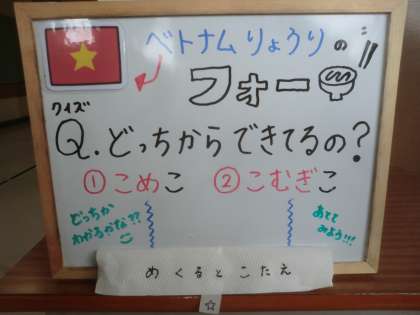 ベトナムりょうりの
フォー
クイズ
Q.どっちからできてるの?
①こめこ ②こむぎこ
どっちか
わかるかな??
あてて
みよう!!!
めくるとこたえ